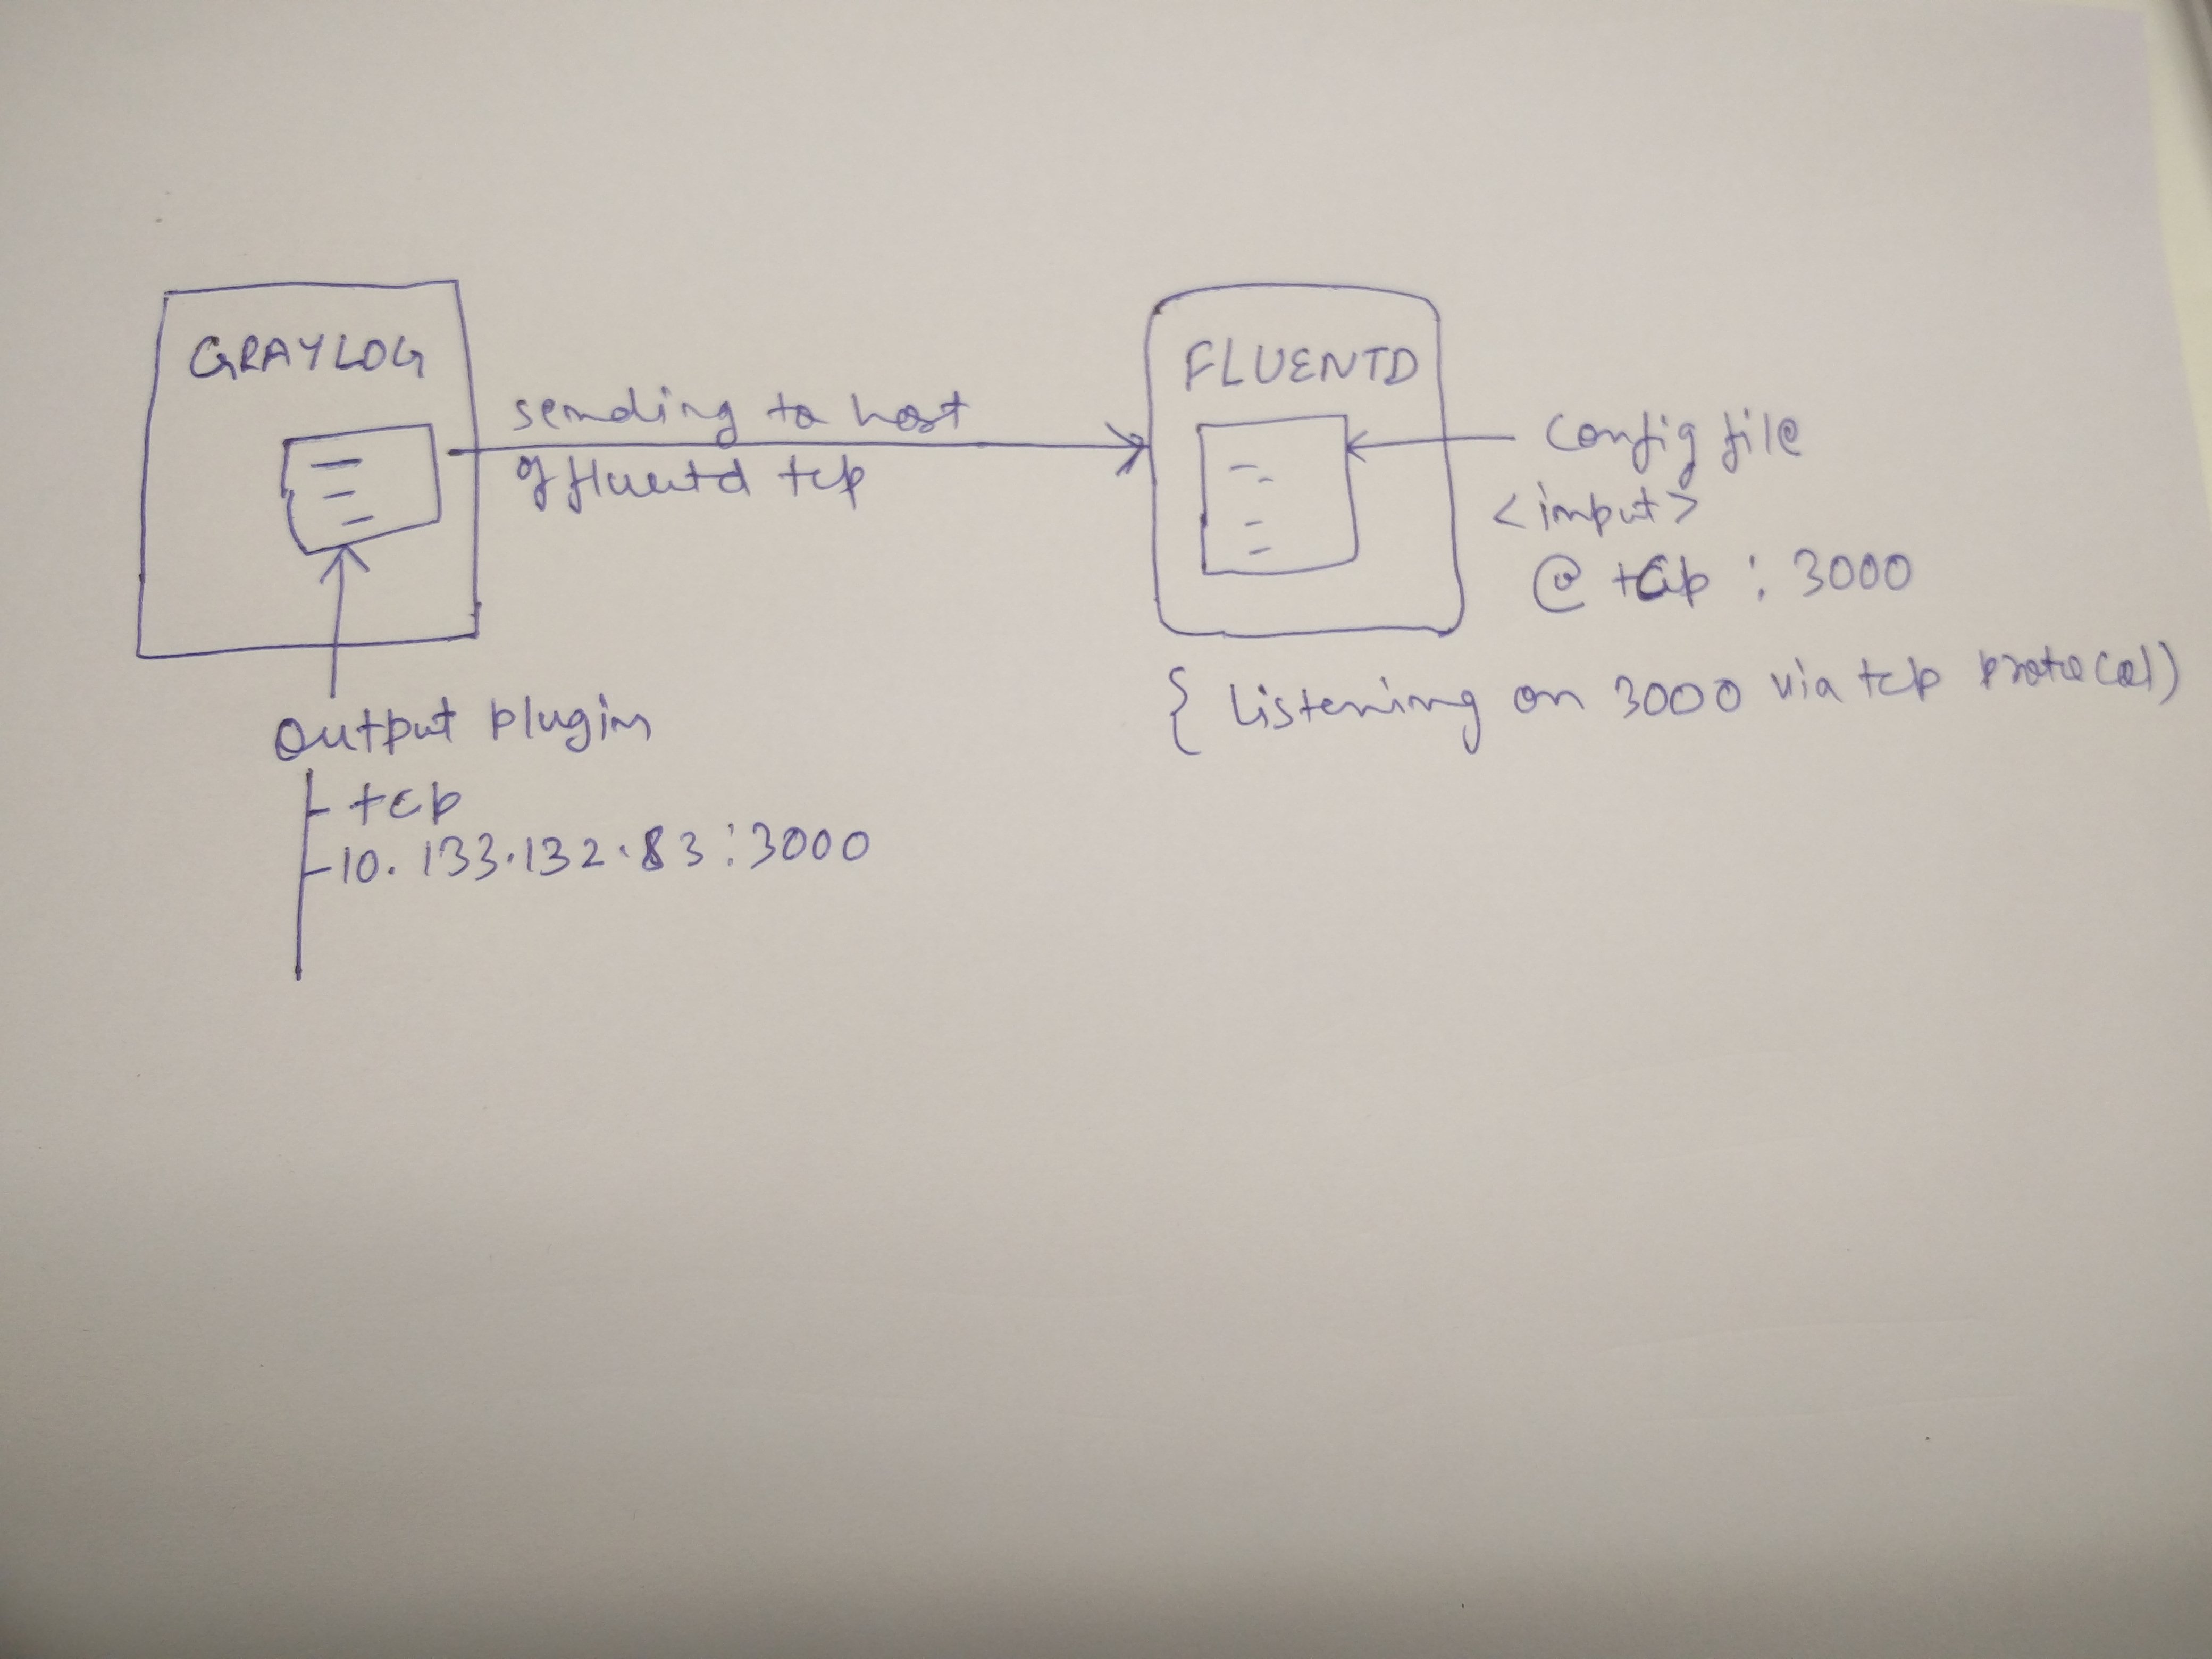 GRAYLOG
sending to host
of fluentd tcp
output plugin
tcp
10.133.132.83:3000
FLUENTD
Config file
<input>
@ tcp : 3000
{ listening on 3000 via tcp protocol)